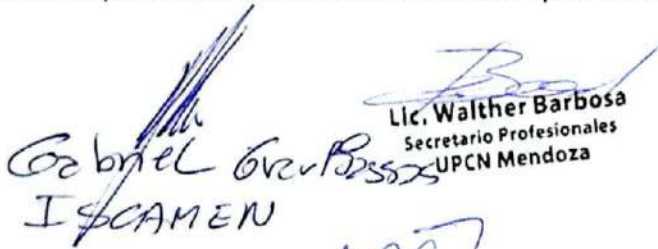 Lic. Walther Barbosa
Secretario Profesionales
UPCN Mendoza
Gabriel
ISCAMEN